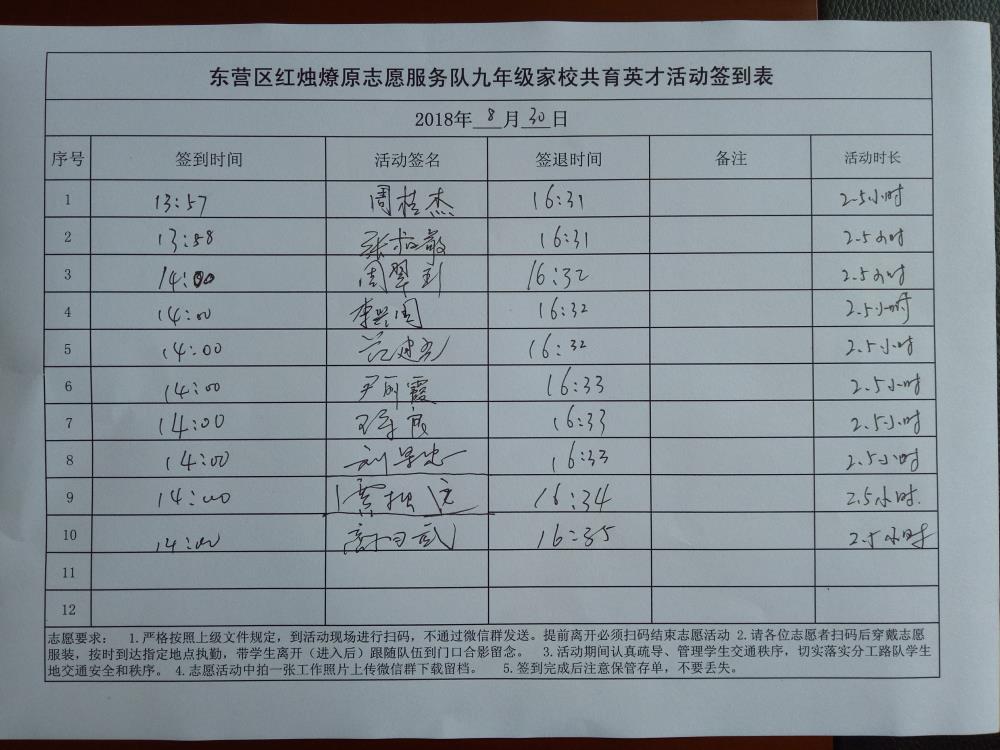 东营区红烛燎原志愿服务队九年级家校共育英才活动签到表
2018年 8 月 30 日
序号 签到时间 活动签名 签退时间 备注 活动时长
1 13:57 周桂杰 16:31 2.5小时
2 13:58 16:31 2.5小时
3 14:00 周翠 16:32 2.5小时
4 14:00 李兴国 16:32 2.5小时
5 14:00 范建光 16:32 2.5小时
6 14:00 尹丽霞 16:33 2.5小时
7 14:00 16:33 2.5小时
8 14:00 刘景忠 16:33 2.5小时
9 14:00 贾 16:34 2.5小时.
10 14:00 16:35 2.5小时
11
12
志愿要求: 1.严格按照上级文件规定，到活动现场进行扫码，不通过微信群发送。提前离开必须扫码结束志愿活动 2.请各位志愿者扫码后穿戴志愿
服装，按时到达指定地点执勤，带学生离开（进入后）跟随队伍到门口合影留念。 3.活动期间认真疏导、管理学生交通秩序，切实落实分工路队学生
地交通安全和秩序。 4.志愿活动中拍一张工作照片上传微信群下载留档。 5.签到完成后注意保管存单，不要丢失。